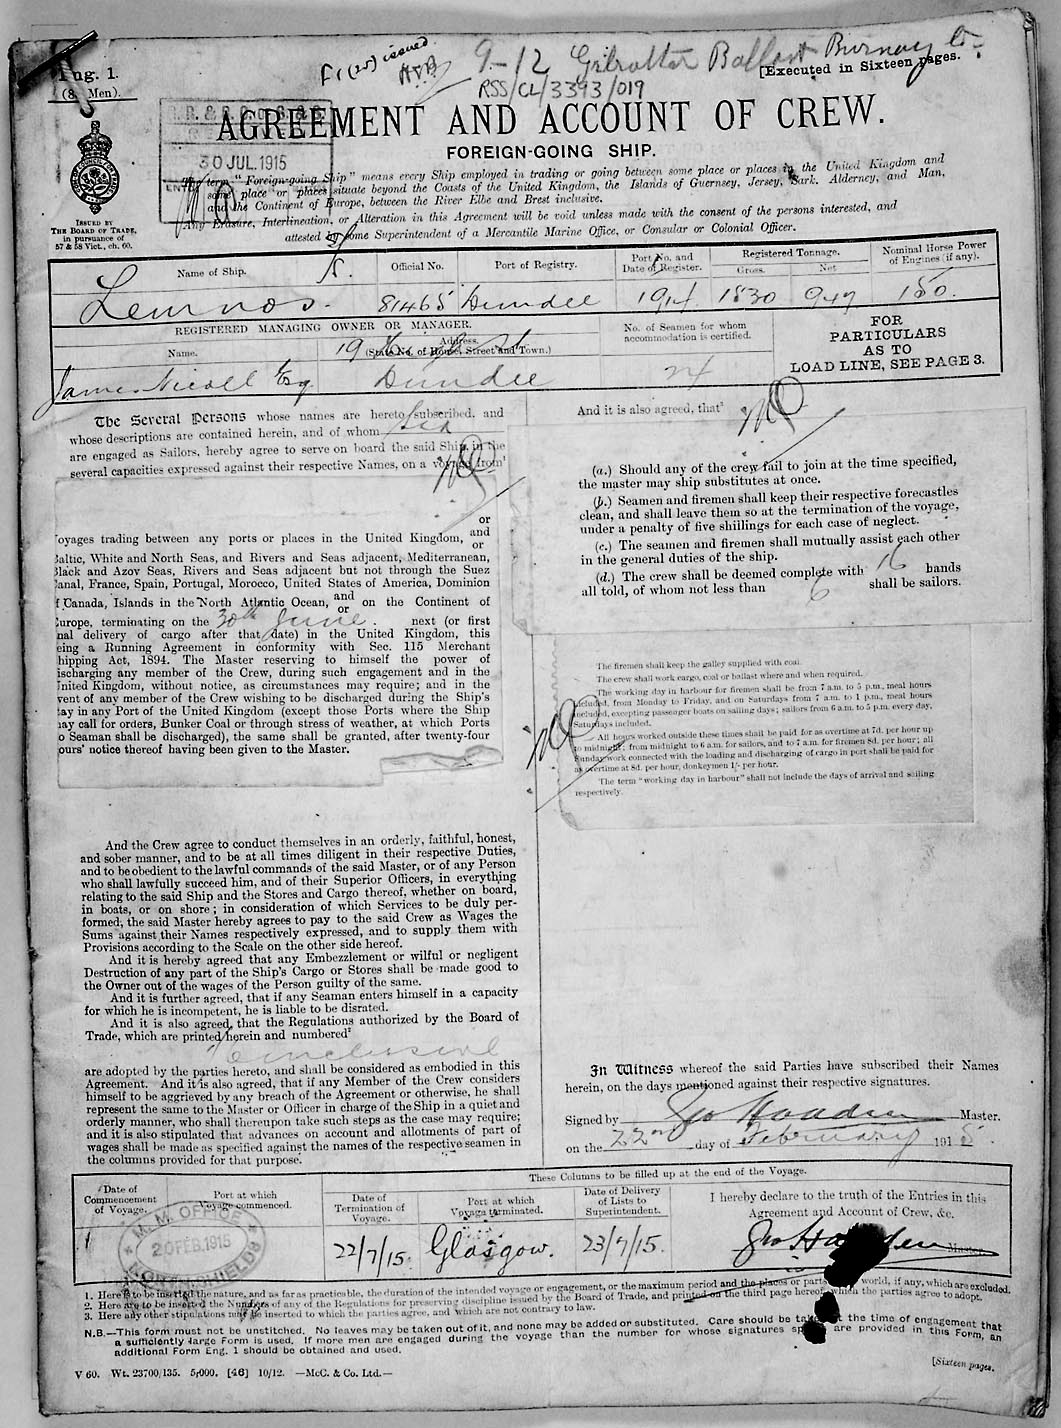 F1(25) issued.
9-12 Gibraltar Ballast
Eng. 1.
[Executed in Sixteen pages.
RSS/CL/3393/019
AGREEMENT AND ACCOUNT OF CREW.
30 JUL.1915
FOREIGN-GOING SHIP.
The term "Foreign-going Ship" means every Ship employed in trading or going between some place or places in the United Kingdom and
some place or places situate beyond the Coasts of the United Kingdom, the Islands of Guernsey, Jersey, Sark, Alderney, and Man,
and the Continent of Europe, between the River Elbe and Brest inclusive.
Any Erasure, Interlineation, or Alteration in this Agreement will be void unless made with the consent of the persons interested, and
attested by some Superintendent of a Mercantile Marine Office, or Consular or Colonial Officer.
ISSUED BY
THE BOARD OF TRADE,
in pursuance of
57 & 58 Vict., ch. 60.
Name of Ship.
Official No.
Port of Registry.
Port No. and
Date of Register.
Registered Tonnage.
Gross.
Net
Nominal Horse Power
of Engines (if any).
Lemnos.
81465
Dundee
1830
947
150.
REGISTERED MANAGING OWNER OR MANAGER.
Name.
Address.
(State No. of House, Street and Town.)
No. of Seamen for whom
accommodation is certified.
FOR
PARTICULARS
AS TO
LOAD LINE, SEE PAGE 3.
James Nicoll Esq
Dundee
24
The Several Persons whose names are hereto subscribed, and
whose descriptions are contained herein, and of whom Six
are engaged as Sailors, hereby agree to serve on board the said Ship, in the
several capacities expressed against their respective Names, on a voyage from¹
or
oyages trading between any ports or places in the United Kingdom, and
or
altic, White and North Seas, and Rivers and Seas adjacent, Mediterranean,
lack and Azov Seas, Rivers and Seas adjacent but not through the Suez
anal, France, Spain, Portugal, Morocco, United States of America, Dominion
f Canada, Islands in the North Atlantic Ocean, and or on the Continent of
urope, terminating on the 30th June. next (or first
nal delivery of cargo after that date) in the United Kingdom, this
eing a Running Agreement in conformity with Sec. 115 Merchant
hipping Act, 1894. The Master reserving to himself the power of
ischarging any member of the Crew, during such engagement and in the
nited Kingdom, without notice, as circumstances may require; and in the
vent of any member of the Crew wishing to be discharged during the Ship's
tay in any Port of the United Kingdom (except those Ports where the Ship
ay call for orders, Bunker Coal or through stress of weather, at which Ports
o Seaman shall be discharged), the same shall be granted, after twenty-four
ours' notice thereof having been given to the Master.
And the Crew agree to conduct themselves in an orderly, faithful, honest,
and sober manner, and to be at all times diligent in their respective Duties,
and to be obedient to the lawful commands of the said Master, or of any Person
who shall lawfully succeed him, and of their Superior Officers, in everything
relating to the said Ship and the Stores and Cargo thereof, whether on board,
in boats, or on shore; in consideration of which Services to be duly per-
formed, the said Master hereby agrees to pay to the said Crew as Wages the
Sums against their Names respectively expressed, and to supply them with
Provisions according to the Scale on the other side hereof.
And it is hereby agreed that any Embezzlement or wilful or negligent
Destruction of any part of the Ship's Cargo or Stores shall be made good to
the Owner out of the wages of the Person guilty of the same.
And it is further agreed, that if any Seaman enters himself in a capacity
for which he is incompetent, he is liable to be disrated.
And it is also agreed, that the Regulations authorized by the Board of
Trade, which are printed herein and numbered²
inclusive
are adopted by the parties hereto, and shall be considered as embodied in this
Agreement. And it is also agreed, that if any Member of the Crew considers
himself to be aggrieved by any breach of the Agreement or otherwise, he shall
represent the same to the Master or Officer in charge of the Ship in a quiet and
orderly manner, who shall thereupon take such steps as the case may require;
and it is also stipulated that advances on account and allotments of part of
wages shall be made as specified against the names of the respective seamen in
the columns provided for that purpose.
And it is also agreed, that³
(a.) Should any of the crew fail to join at the time specified,
the master may ship substitutes at once.
(b.) Seamen and firemen shall keep their respective forecastles
clean, and shall leave them so at the termination of the voyage,
under a penalty of five shillings for each case of neglect.
(c.) The seamen and firemen shall mutually assist each other
in the general duties of the ship.
(d.) The crew shall be deemed complete with 16 hands
all told, of whom not less than 6 shall be sailors.
The firemen shall keep the galley supplied with coal.
The crew shall work cargo, coal or ballast where and when required.
The working day in harbour for firemen shall be from 7 a.m. to 5 p.m., meal hours
included, from Monday to Friday, and on Saturdays from 7 a.m. to 1 p.m., meal hours
included, excepting passenger boats on sailing days; sailors from 6 a.m. to 5 p.m. every day,
Saturdays included.
All hours worked outside these times shall be paid for as overtime at 7d. per hour up
to midnight; from midnight to 6 a.m. for sailors, and to 7 a.m. for firemen 8d. per hour; all
Sunday work connected with the loading and discharging of cargo in port shall be paid for
as overtime at 8d. per hour, donkeymen 1/- per hour.
The term "working day in harbour" shall not include the days of arrival and sailing
respectively.
In Witness whereof the said Parties have subscribed their Names
herein, on the days mentioned against their respective signatures.
Signed by Geo Hoadien Master.
on the 22nd day of February 1915.
These Columns to be filled up at the end of the Voyage.
Date of
Commencement
of Voyage.
Port at which
Voyage commenced.
Date of
Termination of
Voyage.
Port at which
Voyage terminated.
Date of Delivery
of Lists to
Superintendent.
I hereby declare to the truth of the Entries in this
Agreement and Account of Crew, &c.
M. M. OFFICE
20 FEB.1915
NORTH SHIELDS
22/7/15.
Glasgow.
23/7/15.
Master.
1. Here is to be inserted the nature, and as far as practicable, the duration of the intended voyage or engagement, or the maximum period and the places or parts world, if any, which are excluded.
2. Here are to be inserted the Numbers of any of the Regulations for preserving discipline issued by the Board of Trade, and printed on the third page hereof, which the parties agree to adopt.
3. Here any other stipulations may be inserted to which the parties agree, and which are not contrary to law.
N.B.—This form must not be unstitched. No leaves may be taken out of it, and none may be added or substituted. Care should be taken at the time of engagement that
a sufficiently large Form is used. If more men are engaged during the voyage than the number for whose signatures spaces are provided in this Form, an
additional Form Eng. 1 should be obtained and used.
V 60. Wt. 23700/135. 5,000. [46] 10/12. —McC. & Co. Ltd.—
[Sixteen pages.